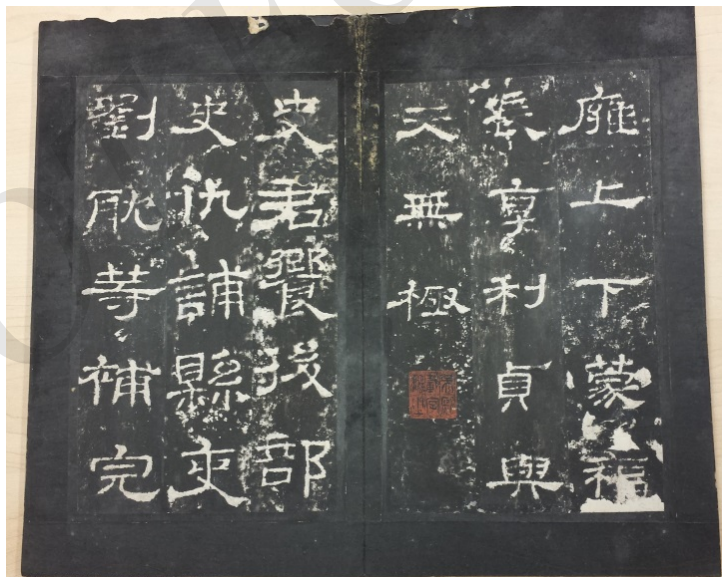 廱上下蒙福
長享利貞與
天無極
史君饗後部
史仇誧縣吏
劉耽等補完